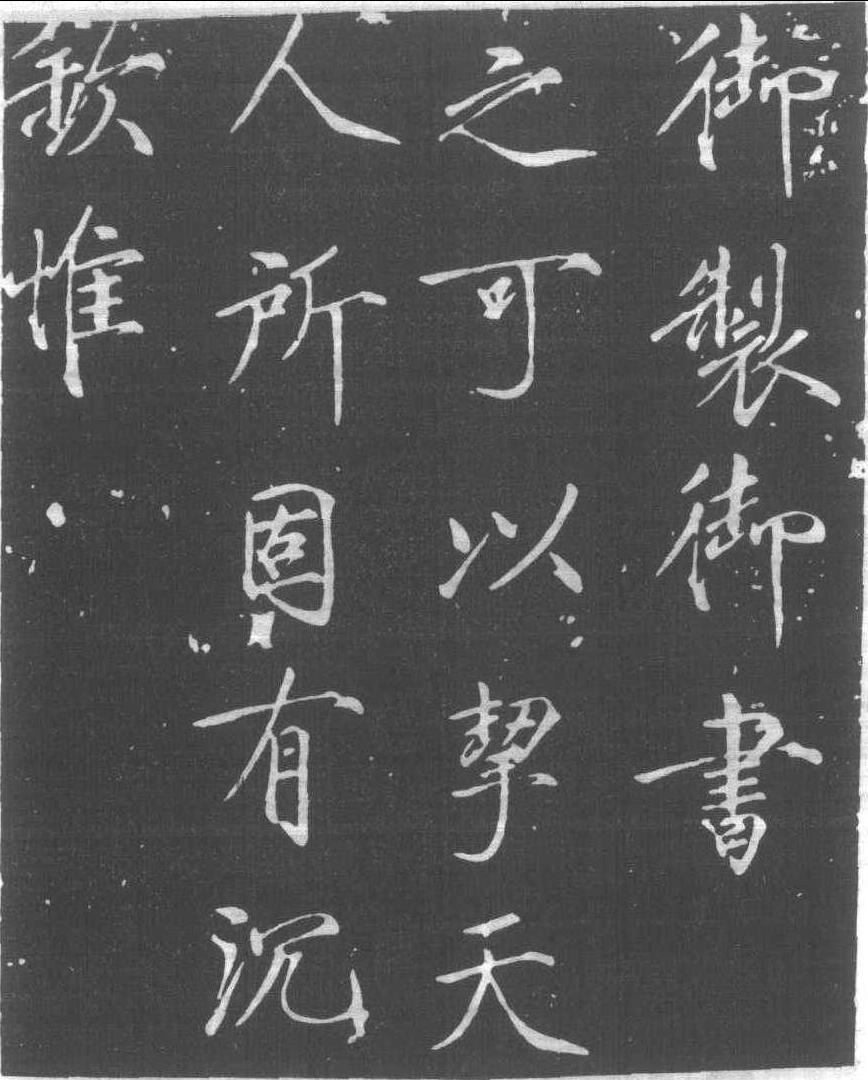 御製御書
之可以挈天
人所固有沉
欽惟